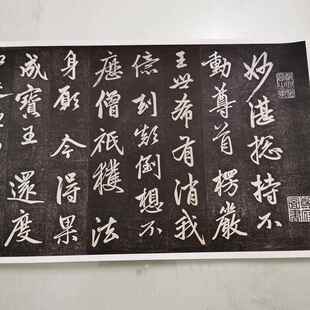 妙湛捴持不
動尊首楞嚴
王世希有消我
億劫顛倒想不
歷僧祇獲法
身願今得果
成寶王還度